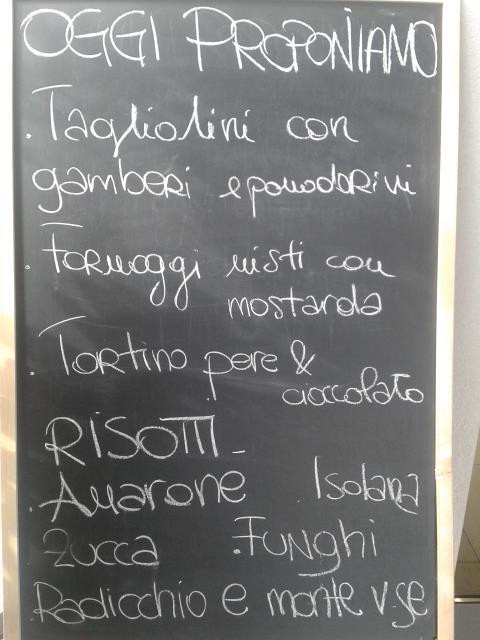 OGGI PROPONIAMO
. Tagliolini con
gamberi e pomodorini
. Formaggi misti con
mostarda
. Tortino pere &
cioccolato
RISOTTI -
. Amarone . Isolana
Zucca . FUNGHI
. Radicchio e monte v.se